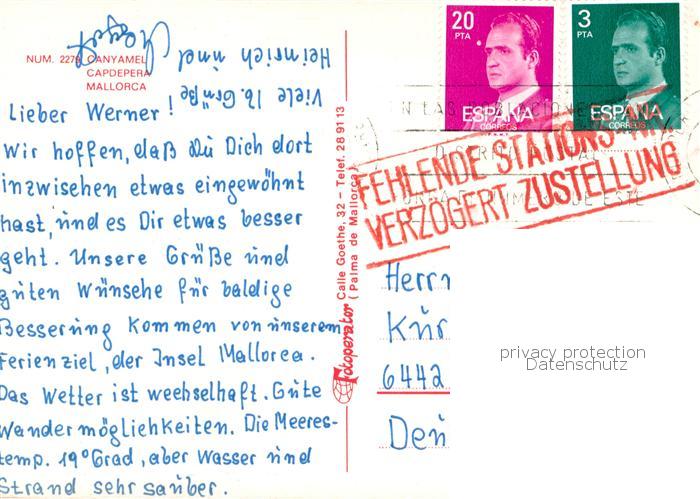 NUM. 2279 CANYAMEL
CAPDEPERA
MALLORCA
Lieber Werner!
Wir hoffen, daß Du Dich dort
inzwischen etwas eingewöhnt
hast, und es Dir etwas besser
geht. Unsere Grüße und
guten Wünsche für baldige
Besserung kommen von unserem
Ferienziel, der Insel Mallorca.
Das Wetter ist wechselhaft. Gute
Wandermöglichkeiten. Die Meeres-
temp. 19° Grad, aber Wasser und
Strand sehr sauber.
Viele lb. Grüße
Heinrich und
Fotoperator Calle Goethe, 32 – Telef. 28 91 13
( Palma de Mallorca )
20
PTA
ESPAÑA
CORREOS
3
PTA
ESPAÑA
CORREOS
FEHLENDE STATIONS-NR.
VERZÖGERT ZUSTELLUNG
Herrn
Kur
6442
Deu
privacy protection
Datenschutz